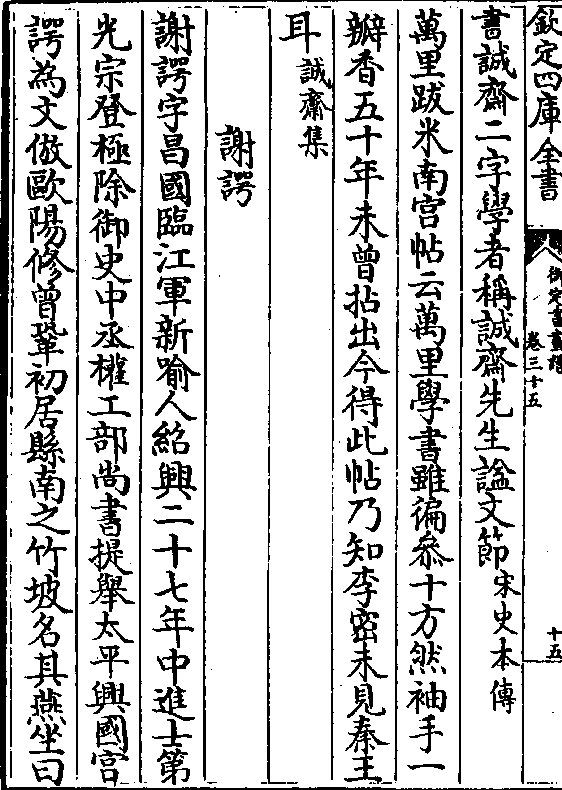 欽定四庫全書
御定書畫譜
卷三十五
十五
書誠齋二字學者稱誠齋先生謚文節宋史本傳
萬里跋米南宫帖云萬里學書雖徧叅十方然袖手一
瓣香五十年未曾拈出今得此帖乃知李密未見秦王
耳誠齋集
謝諤
謝諤字昌國臨江軍新喻人紹興二十七年中進士第
光宗登極除御史中丞權工部尚書提舉太平興國宫
諤為文倣歐陽修曾鞏初居縣南之竹坡名其燕坐曰